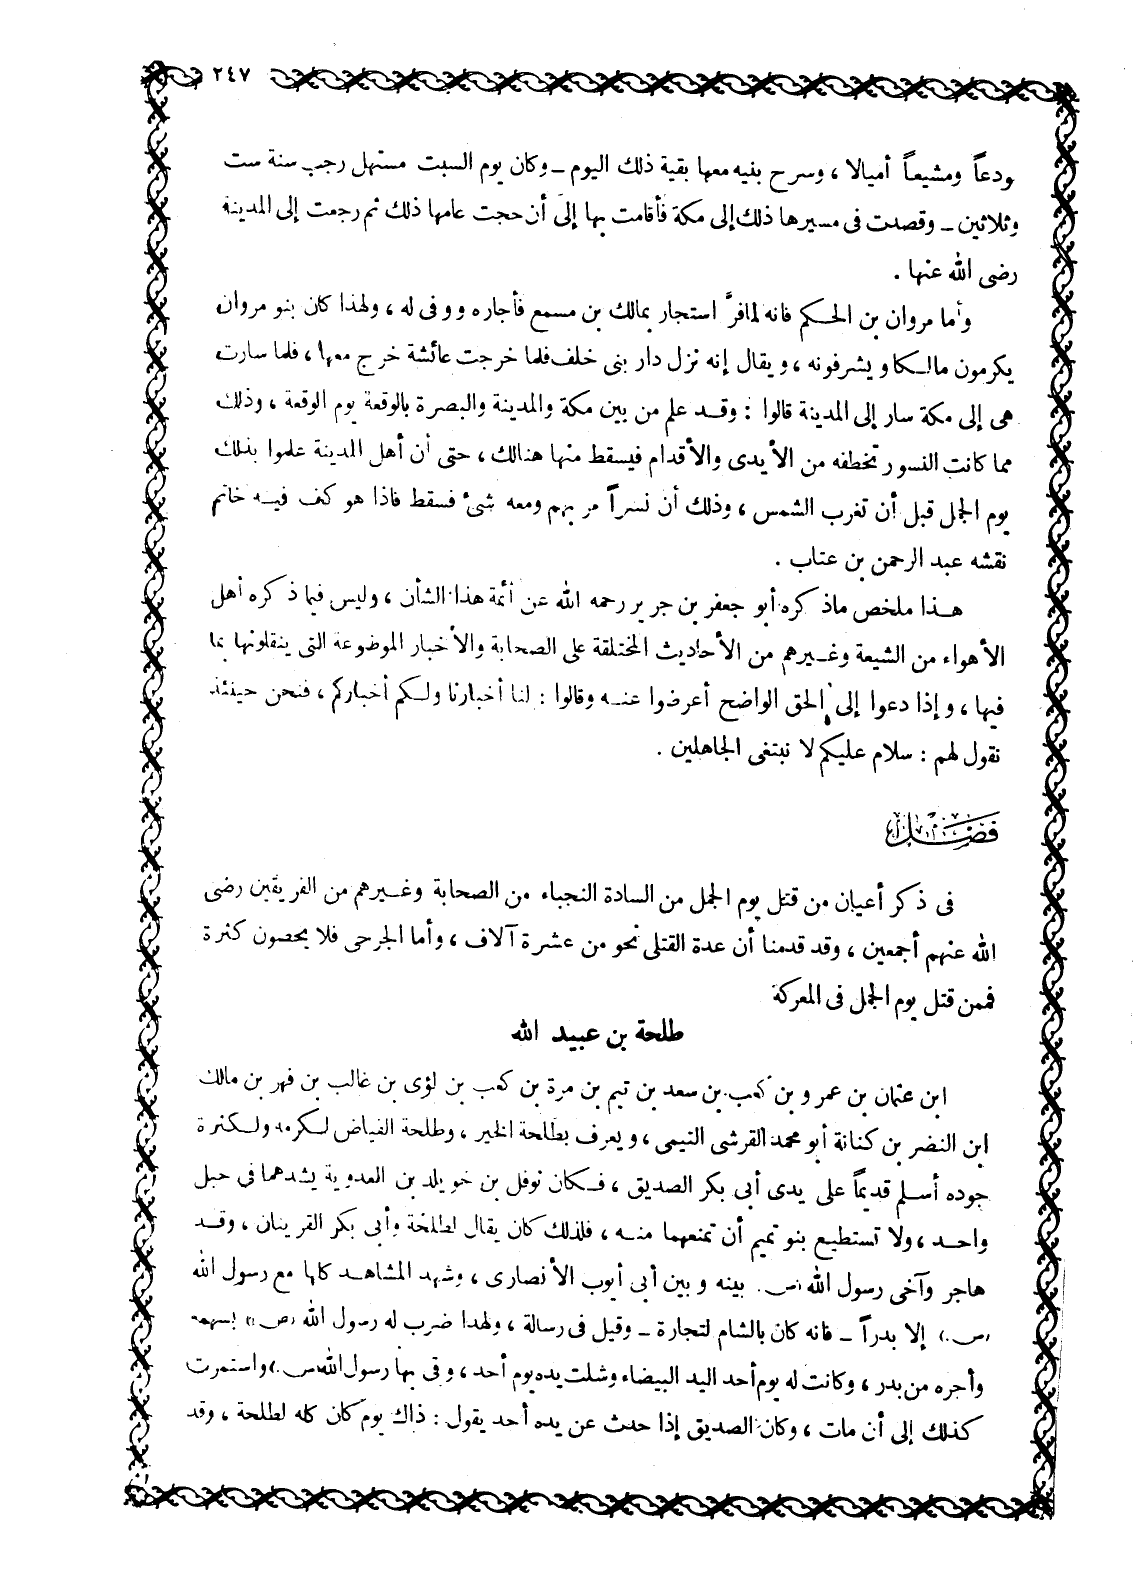 ٢٤٧
ودعاً ومشيعاً أميالا ، وسرح بنيه معها بقية ذلك اليوم – وكان يوم السبت مستهل رجب سنة ست
وثلاثين – وقصدت فى مسيرها ذلك إلى مكة فأقامت بها إلى أن حجت عامها ذلك ثم رجعت إلى المدينة
رضى الله عنها .
وأما مروان بن الحكم فانه لما فرَّ استجار بمالك بن مسمع فأجاره ووفى له ، ولهذا كان بنو مروان
يكرمون مالكا ويشرفونه ، ويقال إنه نزل دار بنى خلف فلما خرجت عائشة خرج معها ، فلما سارت
هى إلى مكة سار إلى المدينة قالوا : وقد علم من بين مكة والمدينة والبصرة بالوقعة يوم الوقعة ، وذلك
مما كانت النسور تخطفه من الأيدى والأقدام فيسقط منها هنالك ، حتى أن أهل المدينة علموا بذلك
يوم الجمل قبل أن تغرب الشمس ، وذلك أن نسراً مر بهم ومعه شئ فسقط فاذا هو كف فيه خاتم
نقشه عبد الرحمن بن عتاب .
هذا ملخص ما ذكره أبو جعفر بن جرير رحمه الله عن أئمة هذا الشأن ، وليس فيما ذكره أهل
الأهواء من الشيعة وغيرهم من الأحاديث المختلقة على الصحابة والأخبار الموضوعة التى ينقلونها بما
فيها ، وإذا دعوا إلى الحق الواضح أعرضوا عنه وقالوا : لنا أخبارنا ولكم أخباركم ، فنحن حينئذ
نقول لهم : سلام عليكم لا نبتغى الجاهلين .
فصل
فى ذكر أعيان من قتل يوم الجمل من السادة النجباء من الصحابة وغيرهم من الفريقين رضى
الله عنهم أجمعين ، وقد قدمنا أن عدة القتلى نحو من عشرة آلاف ، وأما الجرحى فلا يحصون كثرة
فممن قتل يوم الجمل فى المعركة
طلحة بن عبيد الله
ابن عثمان بن عمرو بن كعب بن سعد بن تيم بن مرة بن كعب بن لؤى بن غالب بن فهر بن مالك
ابن النضر بن كنانة أبو محمد القرشى التيمى ، ويعرف بطلحة الخير ، وطلحة الفياض لكرمه ولكثرة
جوده أسلم قديماً على يدى أبى بكر الصديق ، فكان نوفل بن خويلد بن العدوية يشدهما فى حبل
واحد ، ولا تستطيع بنو تميم أن تمنعهما منه ، فلذلك كان يقال لطلحة وأبى بكر القرينان ، وقد
هاجر وآخى رسول الله (ص) بينه وبين أبى أيوب الأنصارى ، وشهد المشاهد كلها مع رسول الله
(ص) إلا بدراً – فانه كان بالشام لتجارة – وقيل فى رسالة ، ولهذا ضرب له رسول الله (ص) بسهمه
وأجره من بدر ، وكانت له يوم أحد اليد البيضاء وشلت يده يوم أحد ، وقى بها رسول الله (ص) واستمرت
كذلك إلى أن مات ، وكان الصديق إذا حدث عن يده أحد يقول : ذاك يوم كان كله لطلحة ، وقد